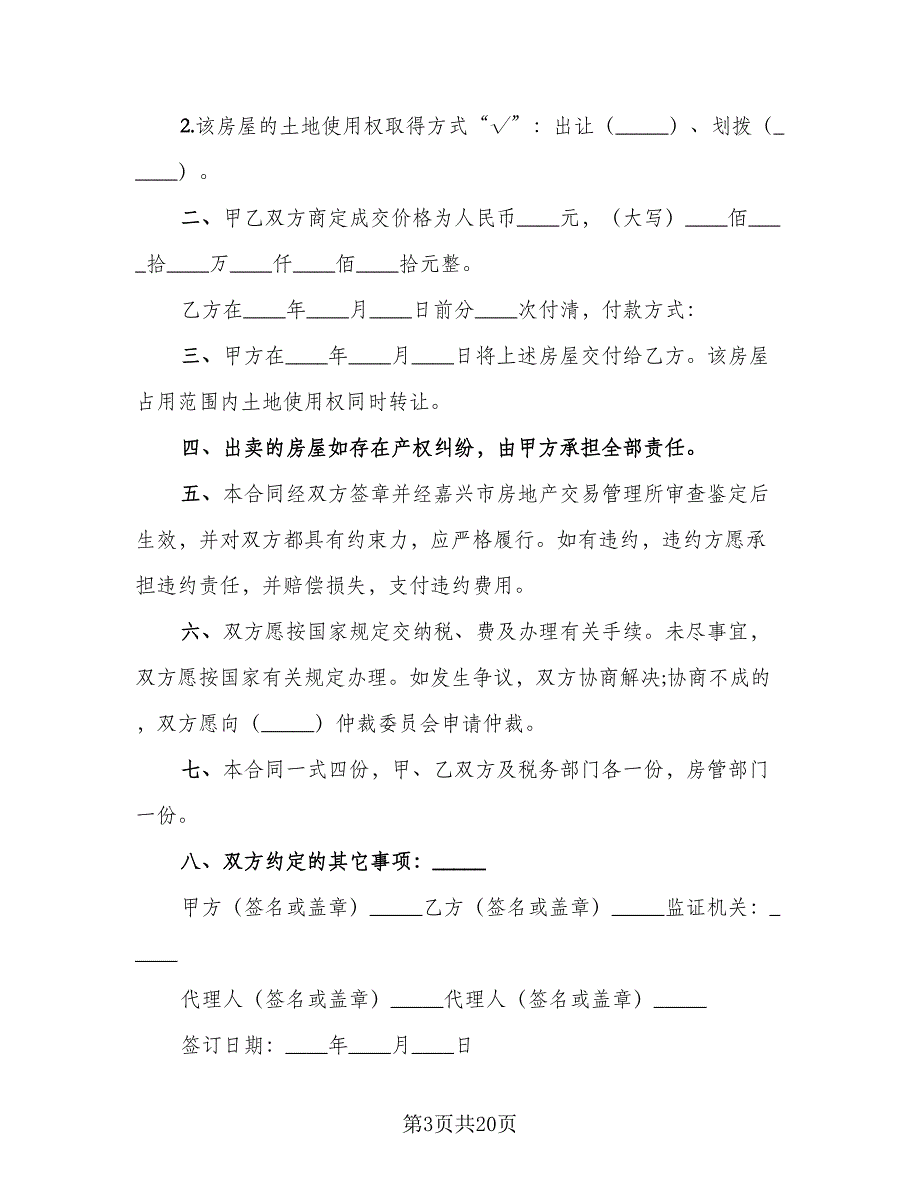 2.该房屋的土地使用权取得方式“√”：出让（_____）、划拨（_
____）。
二、甲乙双方商定成交价格为人民币____元，（大写）____佰___
_拾____万____仟____佰____拾元整。
乙方在____年____月____日前分____次付清，付款方式：
三、甲方在____年____月____日将上述房屋交付给乙方。该房屋
占用范围内土地使用权同时转让。
四、出卖的房屋如存在产权纠纷，由甲方承担全部责任。
五、本合同经双方签章并经嘉兴市房地产交易管理所审查鉴定后
生效，并对双方都具有约束力，应严格履行。如有违约，违约方愿承
担违约责任，并赔偿损失，支付违约费用。
六、双方愿按国家规定交纳税、费及办理有关手续。未尽事宜，
双方愿按国家有关规定办理。如发生争议，双方协商解决;协商不成的
，双方愿向（_____）仲裁委员会申请仲裁。
七、本合同一式四份，甲、乙双方及税务部门各一份，房管部门
一份。
八、双方约定的其它事项：_____
甲方（签名或盖章）_____乙方（签名或盖章）_____监证机关：_
____
代理人（签名或盖章）_____代理人（签名或盖章）_____
签订日期：____年____月____日
第3页共20页